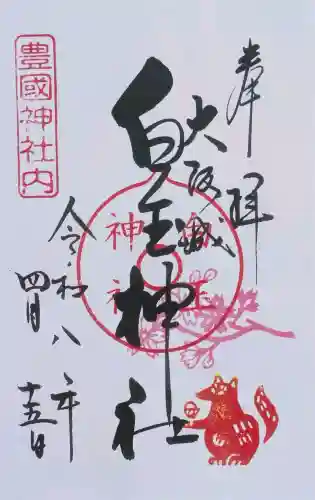 奉拝
大阪城
白玉神社
令和八年
四月十五日
豊國神社内
白玉
神社